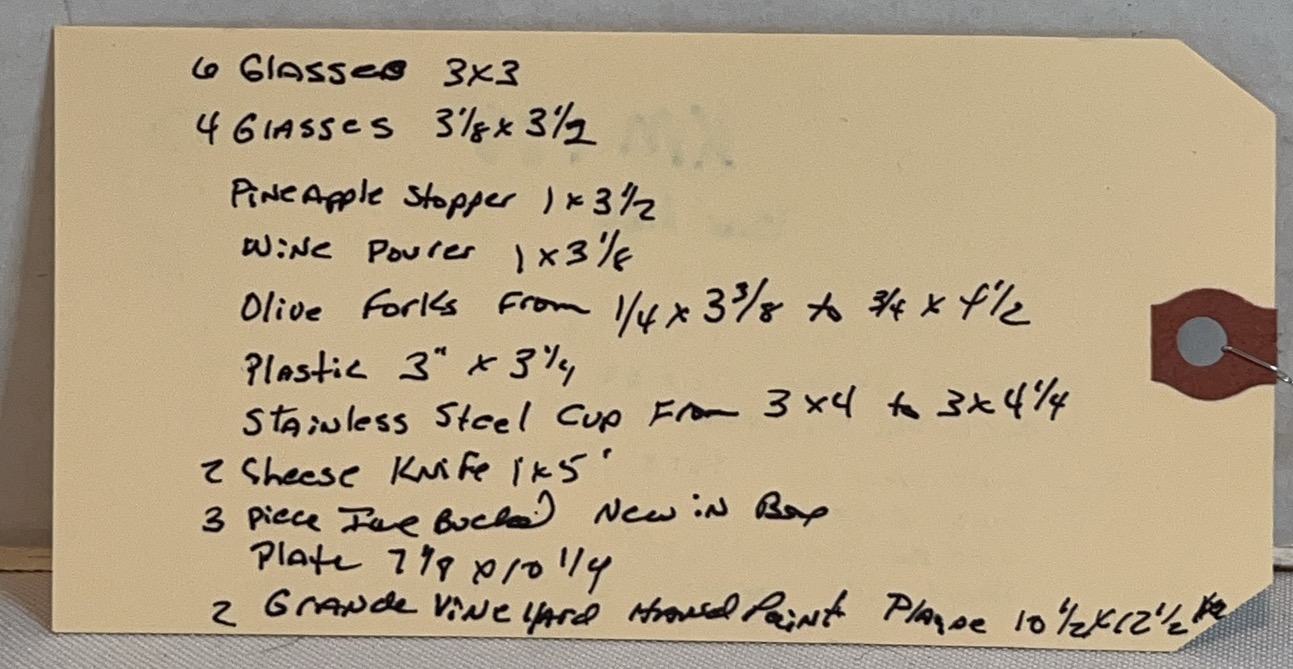 6 Glasses 3x3
4 Glasses 3 1/8 x 3 1/2
PineApple Stopper 1 x 3 1/2
Wine Pourer 1 x 3 1/8
Olive Forks From 1/4 x 3 3/8 to 3/4 x 4 1/2
Plastic 3" x 3 1/4
Stainless Steel Cup From 3 x 4 to 3 x 4 1/4
2 Sheese Knife 1 x 5'
3 Piece New in Box
Plate 7 x 10 1/4
2 Grande Vineyard Paint Plaque 10 1/2 x 12 1/2